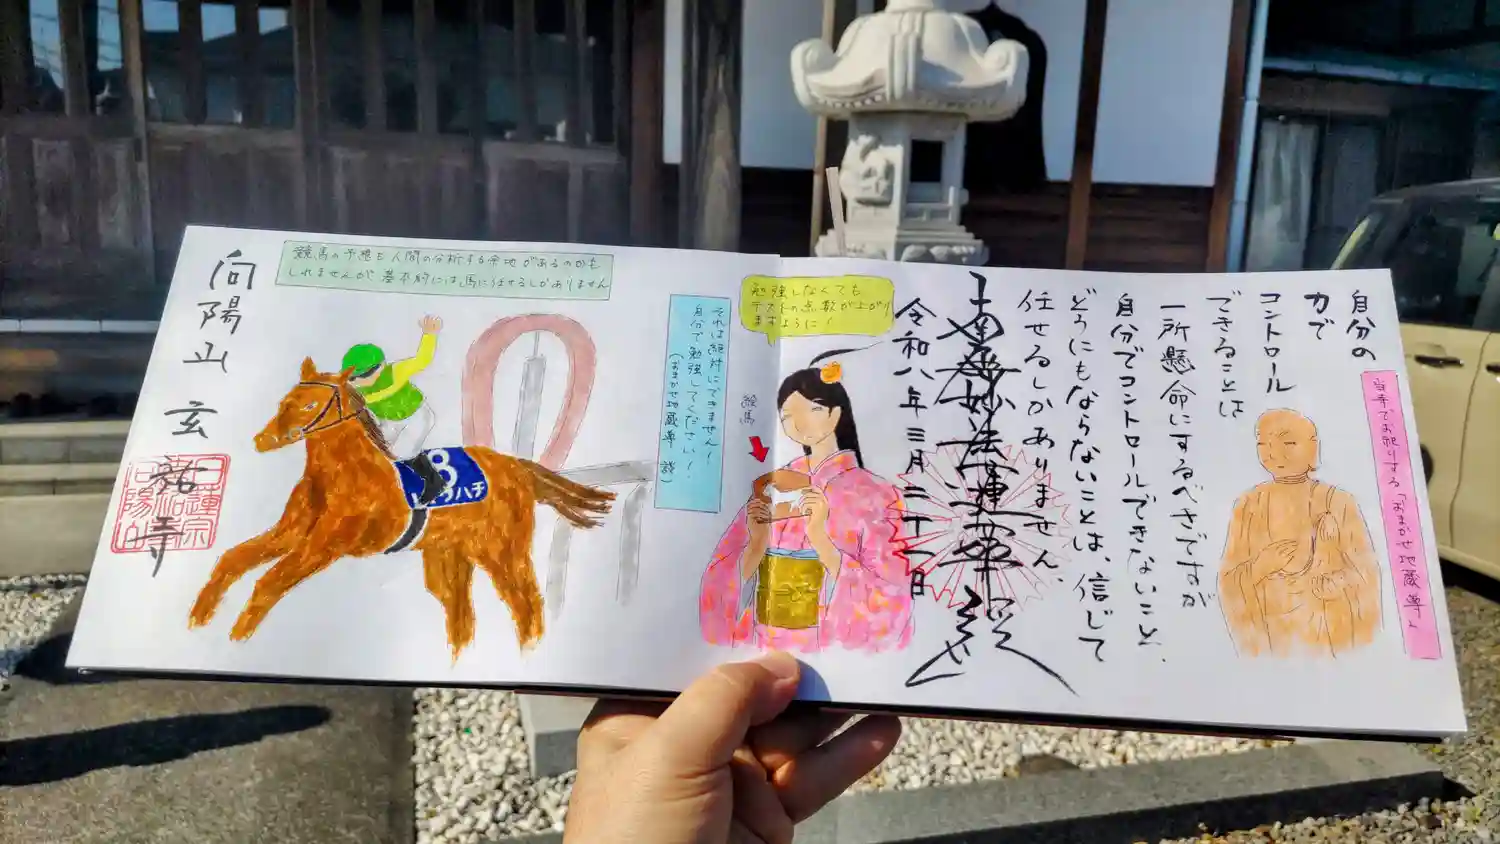 自分の
力で
コントロール
できることは
一所懸命にするべきですが
自分でコントロールできないこと、
どうにもならないことは、信じて
任せるしかありません、
当寺でお祀りする「おまかせ地蔵尊」
南無妙法蓮華経
令和八年三月二十一日
勉強しなくても
テストの点数が上がり
ますように!
絵馬
それは絶対にできません!
自分で勉強してください!
(おまかせ地蔵尊 談)
競馬の予想も人間の分析する余地があるのかも
しれませんが基本的には馬に任せるしかありません
8
ハチ
向陽山 玄祐寺
日蓮宗